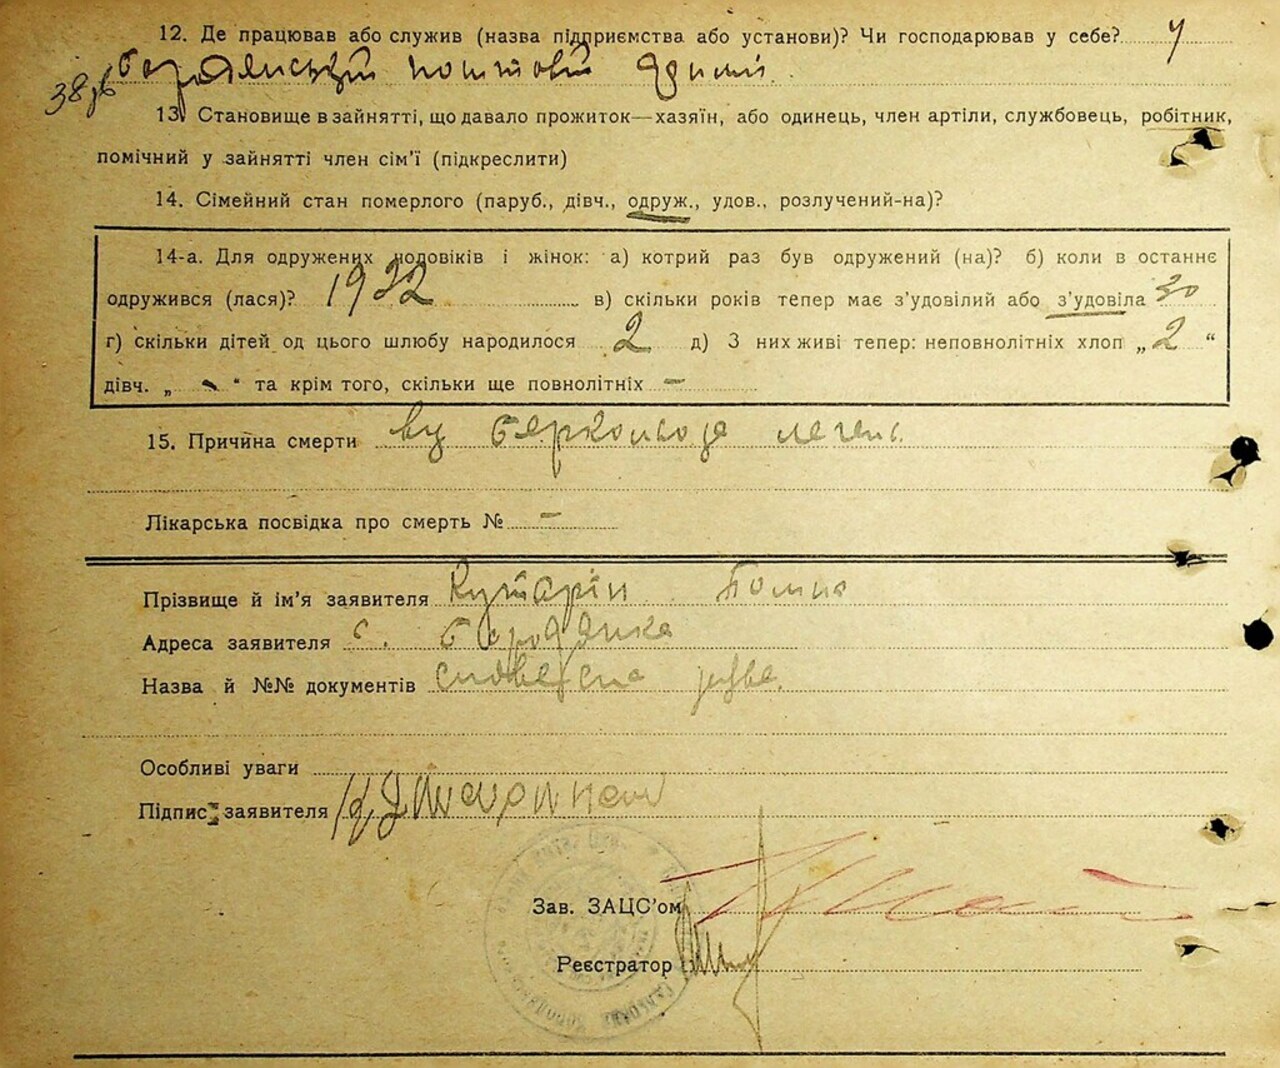 12. Де працював або служив (назва підприємства або установи)? Чи господарював у себе? У
бородянський поштовій
13. Становище в зайнятті, що давало прожиток—хазяїн, або одинець, член артіли, службовець, робітник,
помічний у зайнятті член сім'ї (підкреслити)
14. Сімейний стан померлого (паруб., дівч., одруж., удов., розлучений-на)?
14-а. Для одружених чоловіків і жінок: а) котрий раз був одружений (на)? б) коли в останнє
одружився (лася)? 1932 в) скільки років тепер має з'удовілий або з'удовіла 30
г) скільки дітей од цього шлюбу народилося 2 д) З них живі тепер: неповнолітніх хлоп „ 2 “
дівч. „ - “ та крім того, скільки ще повнолітніх —
15. Причина смерти легень
Лікарська посвідка про смерть № —
Прізвище й ім'я заявителя
Адреса заявителя с. Бородянка
Назва й №№ документів
Особливі уваги
Підпис заявителя
Зав. ЗАЦС'ом
Реєстратор